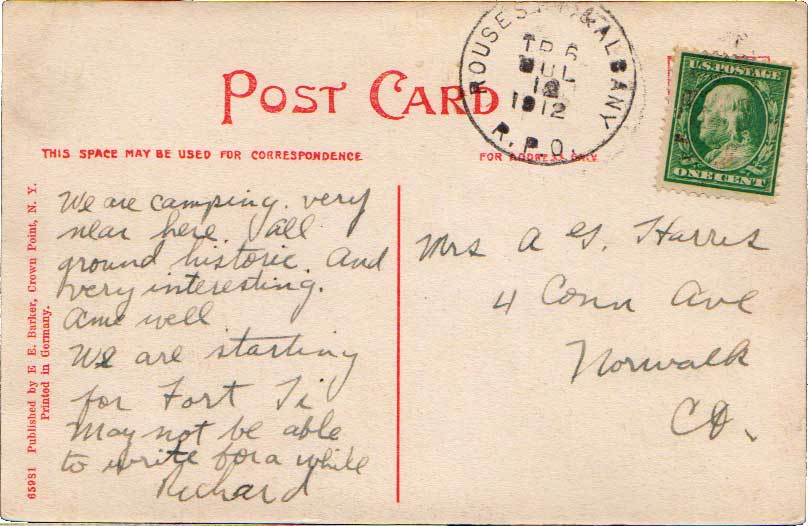 POST CARD
THIS SPACE MAY BE USED FOR CORRESPONDENCE
FOR ADDRESS ONLY
ROUSES & ALBANY
TR 6
JUL
12
1912
R.P.O.
U.S. POSTAGE
ONE CENT
65931 Published by E. E. Barker, Crown Point, N. Y.
Printed in Germany.
We are camping. very
near here all
ground historic. And
very interesting.
well
We are starting
for Fort Ti
May not be able
to write for a while
Richard
Mrs A G. Harris
4 Conn Ave
Norwalk